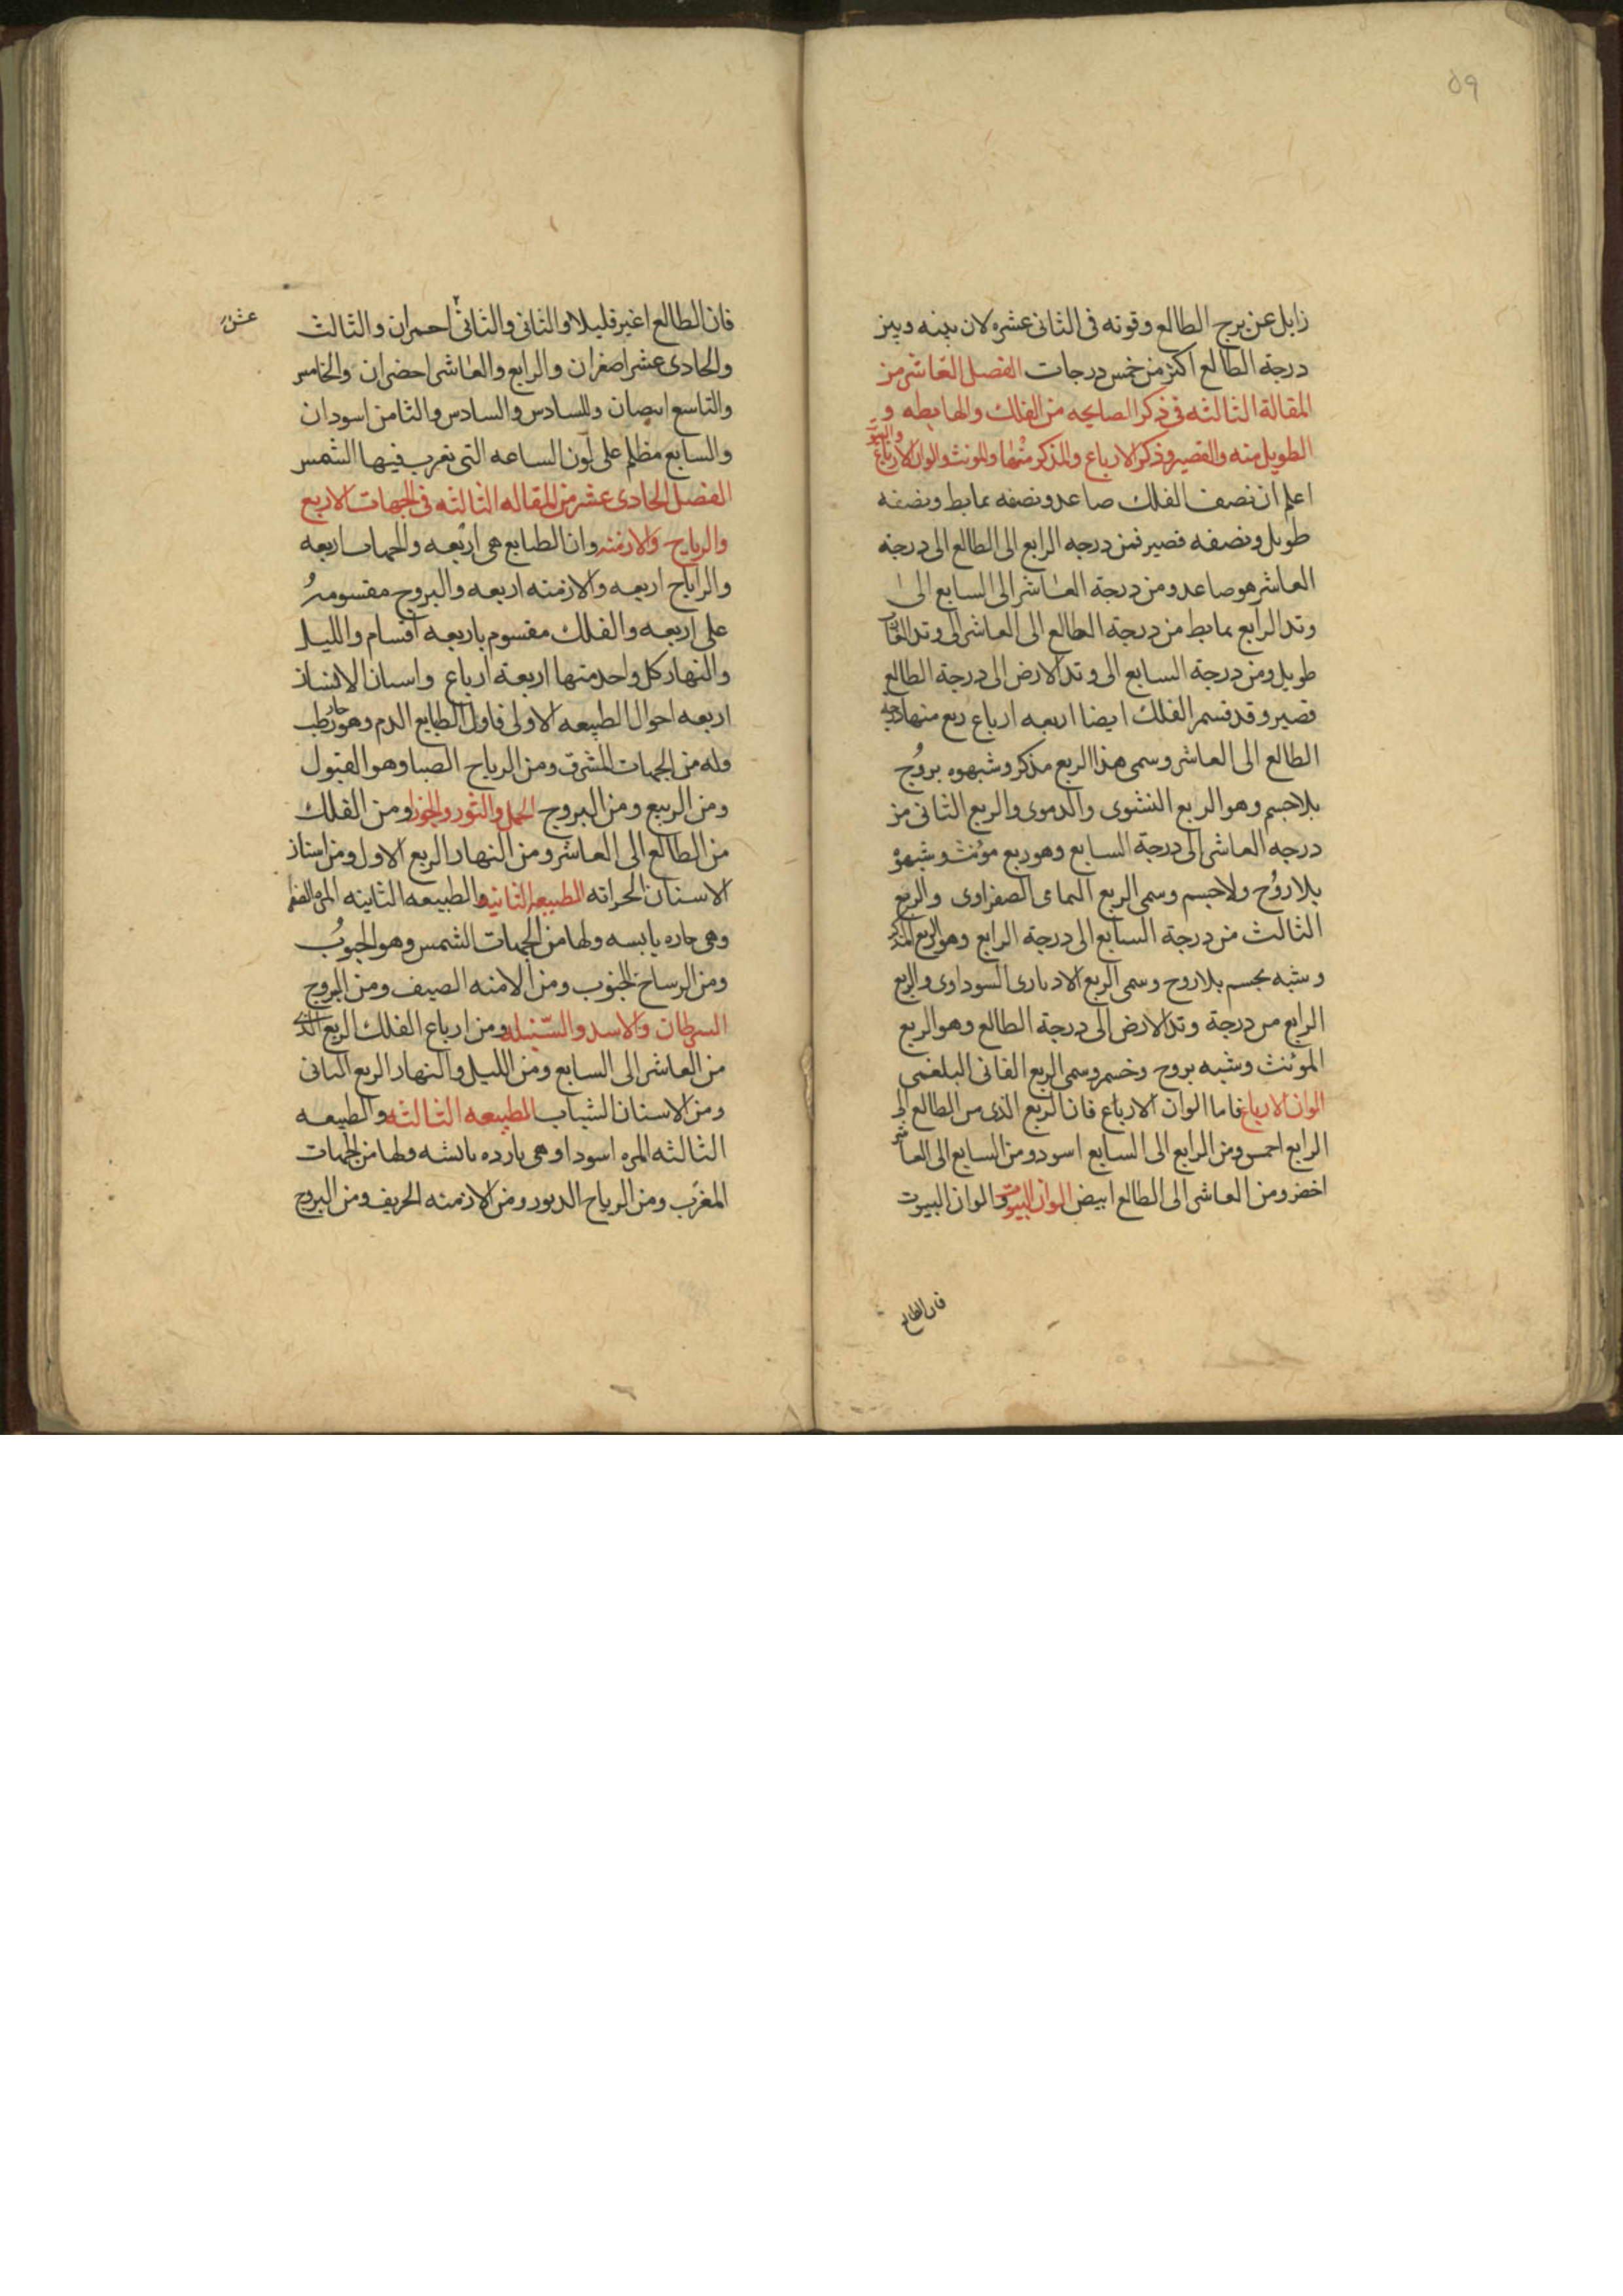 ٥٩
زايل عن برج الطالع وقوته فى الثانى عشره لان بينه وبين
درجة الطالع اكثر من خمس درجات الفصل العاشر من
المقالة الثالثه فى ذكر الصاعده من الفلك والهابطه و
الطويل منه والقصير وذكر الارباع والمذكر منها والمونث والوان الارباع
والبيوت
اعلم ان نصف الفلك صاعد ونصفه هابط ونصفه
طويل ونصفه قصير فمن درجه الرابع الى الطالع الى درجة
العاشر هو صاعد ومن درجة العاشر الى السابع الى
وتد الرابع هابط من درجة الطالع الى العاشر الى وتد
طويل ومن درجة السابع الى وتد الارض الى درجة الطالع
قصير وقد قسم الفلك ايضا اربعه ارباع ربع منها درجه
الطالع الى العاشر وسمى هذا الربع مذكر وشبهوه بروُح
بلا جسم وهو الربع النشوى والدموى والربع الثانى من
درجه العاشر الى درجة السابع وهو ربع مؤنث وشبهوه
بلا روُح ولا جسم وسمى الربع الصفراوى والربع
الثالث من درجة السابع الى درجة الرابع وهو الربع المذكر
وشبه بجسم بلا روح وسمى الربع الادبارى السوداوى والربع
الرابع من درجة وتد الارض الى درجة الطالع وهو الربع
المؤنث وشبه بروح وسمى الربع الفانى البلغمى
الوان الارباع فاما الوان الارباع فان الربع الذى من الطالع الى
الرابع احمر ومن الرابع الى السابع اسود ومن السابع الى العاشر
اخضر ومن العاشر الى الطالع ابيض الوان البيوت والوان البيوت
فان الطالع
فان الطالع اغبر قليلا والثانى والثانى احمران والثالث
عشر
والحادى عشر اصفران والرابع والعاشر اخضران والخامس
والتاسع ابيضان والسادس والسادس والثامن اسودان
والسابع مظلم على لون الساعه التى تغرب فيها الشمس
الفصل الحادى عشر من المقاله الثالثه فى الجهات الاربع
والرياح والازمنه وان الطبايع هى اربعه والجهات اربعه
والراياح اربعه والازمنه اربعه والبروج مقسومه
على اربعه والفلك مقسوم باربعه اقسام والليل
والنهار كل واحد منها اربعة ارباع واسنان الانسان
اربعه احوال الطبيعه الاولى فاول الطبايع الدم وهو حار رطب
وله من الجهات المشرق ومن الرياح الصبا وهو القبول
ومن الربيع ومن البروج الحمل والثور والجوزا ومن الفلك
من الطالع الى العاشر ومن النهار الربع الاول ومن اسنان
الاسنان الحداثه الطبيعه الثانيه والطبيعه الثانيه المره الصفرا
وهى حاره يابسه ولها من الجهات الشمس وهو الجنوبُ
ومن الرساخ الجنوب ومن الامنه الصيف ومن البروج
السرطان والاسد والسّنبله ومن ارباع الفلك الربع الذى
من العاشر الى السابع ومن الليل والنهار الربع الثانى
ومن الاسنان الشباب الطبيعه الثالثه والطبيعه
الثالثه المره اسودا وهى بارده يابسه ولها من الجهات
المغرب ومن الرياح الدبور ومن الازمنه الخريف ومن البروج